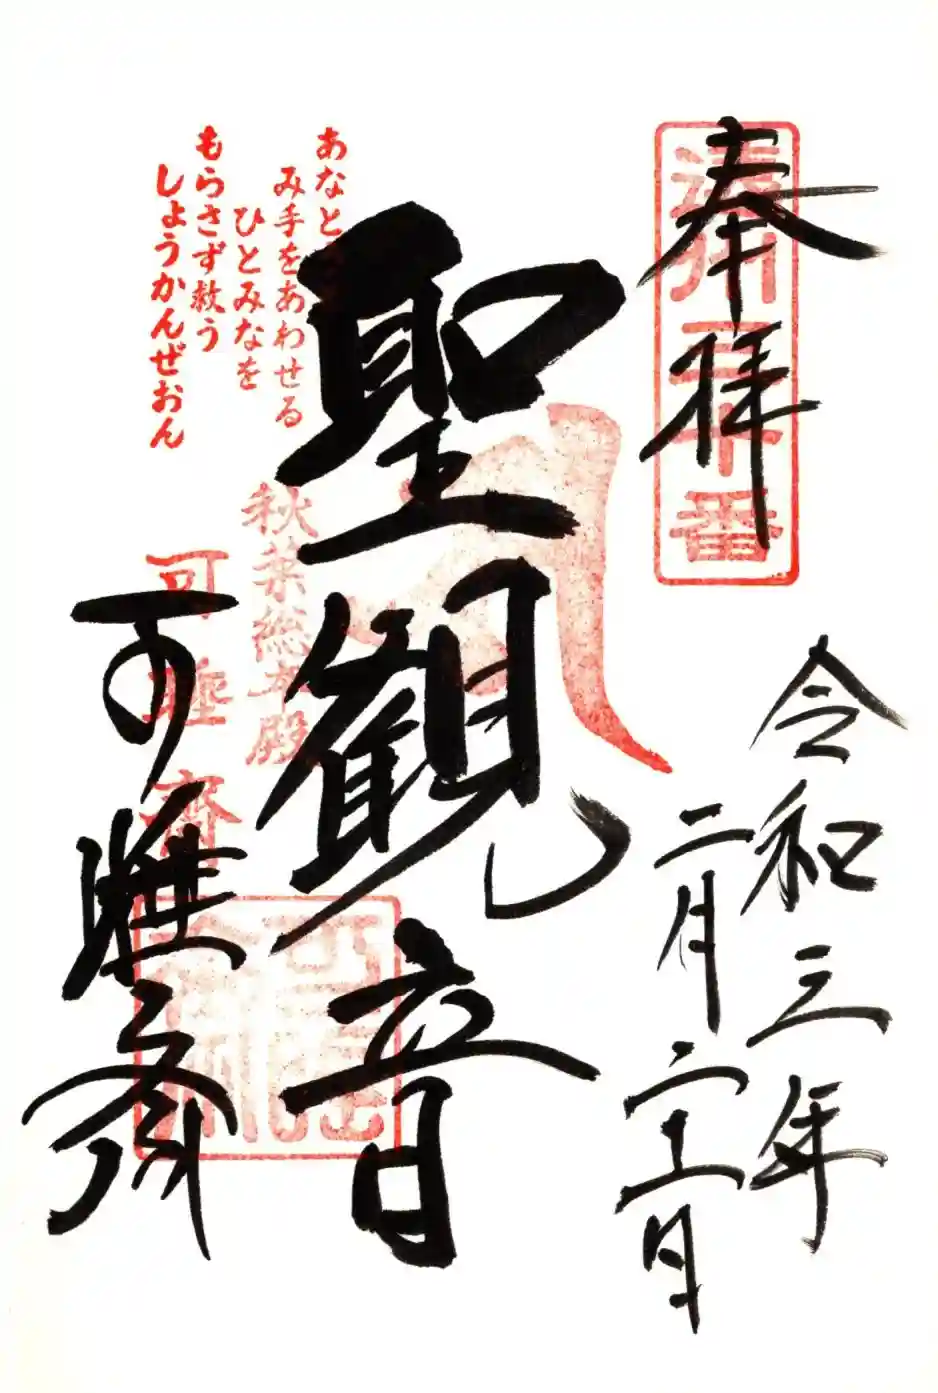 奉拝
遠州三十番
令和三年
二月二十一日
聖観音
あなと
み手をあわせる
ひとみなを
もらさず救う
しょうかんぜおん
秋葉総本殿
可睡齋
可睡斎